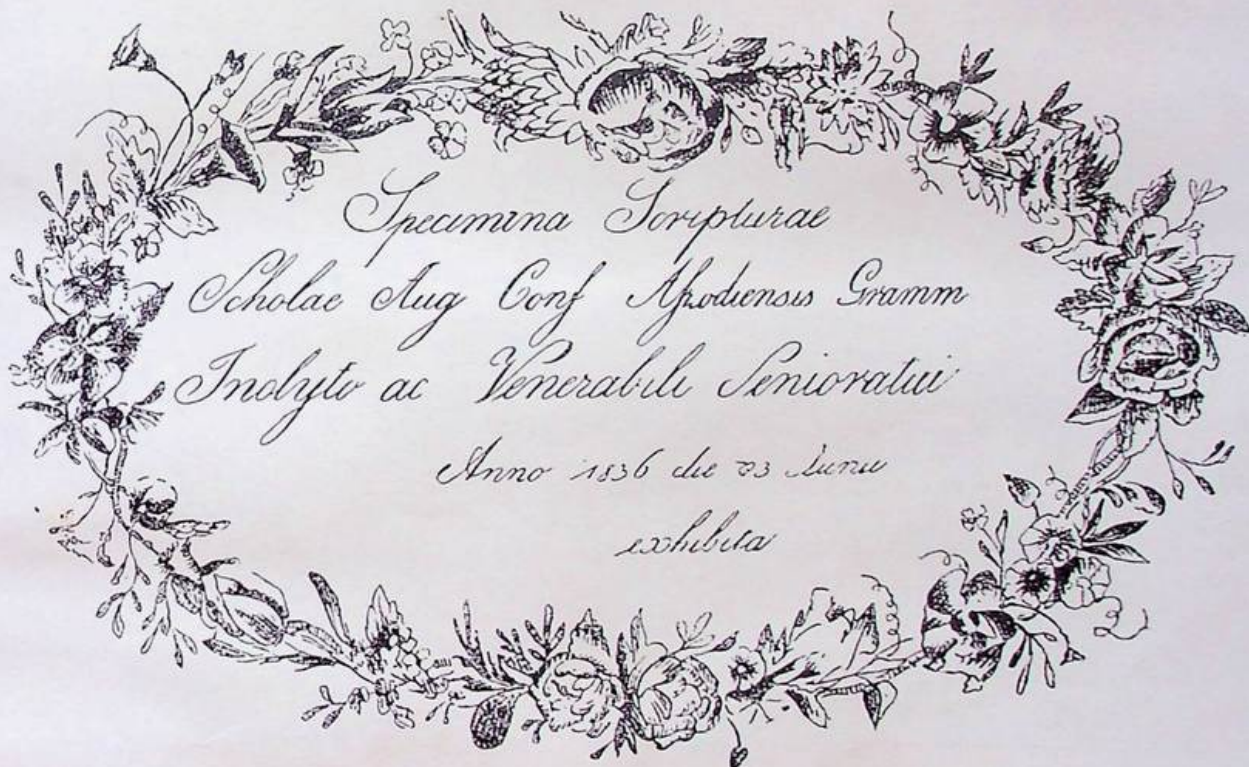 Specimina Scripturae
Scholae Aug Conf Aszodiensis Gramm
Inclyto ac Venerabili Senioratui
Anno 1836 die 23 Junii
exhibita